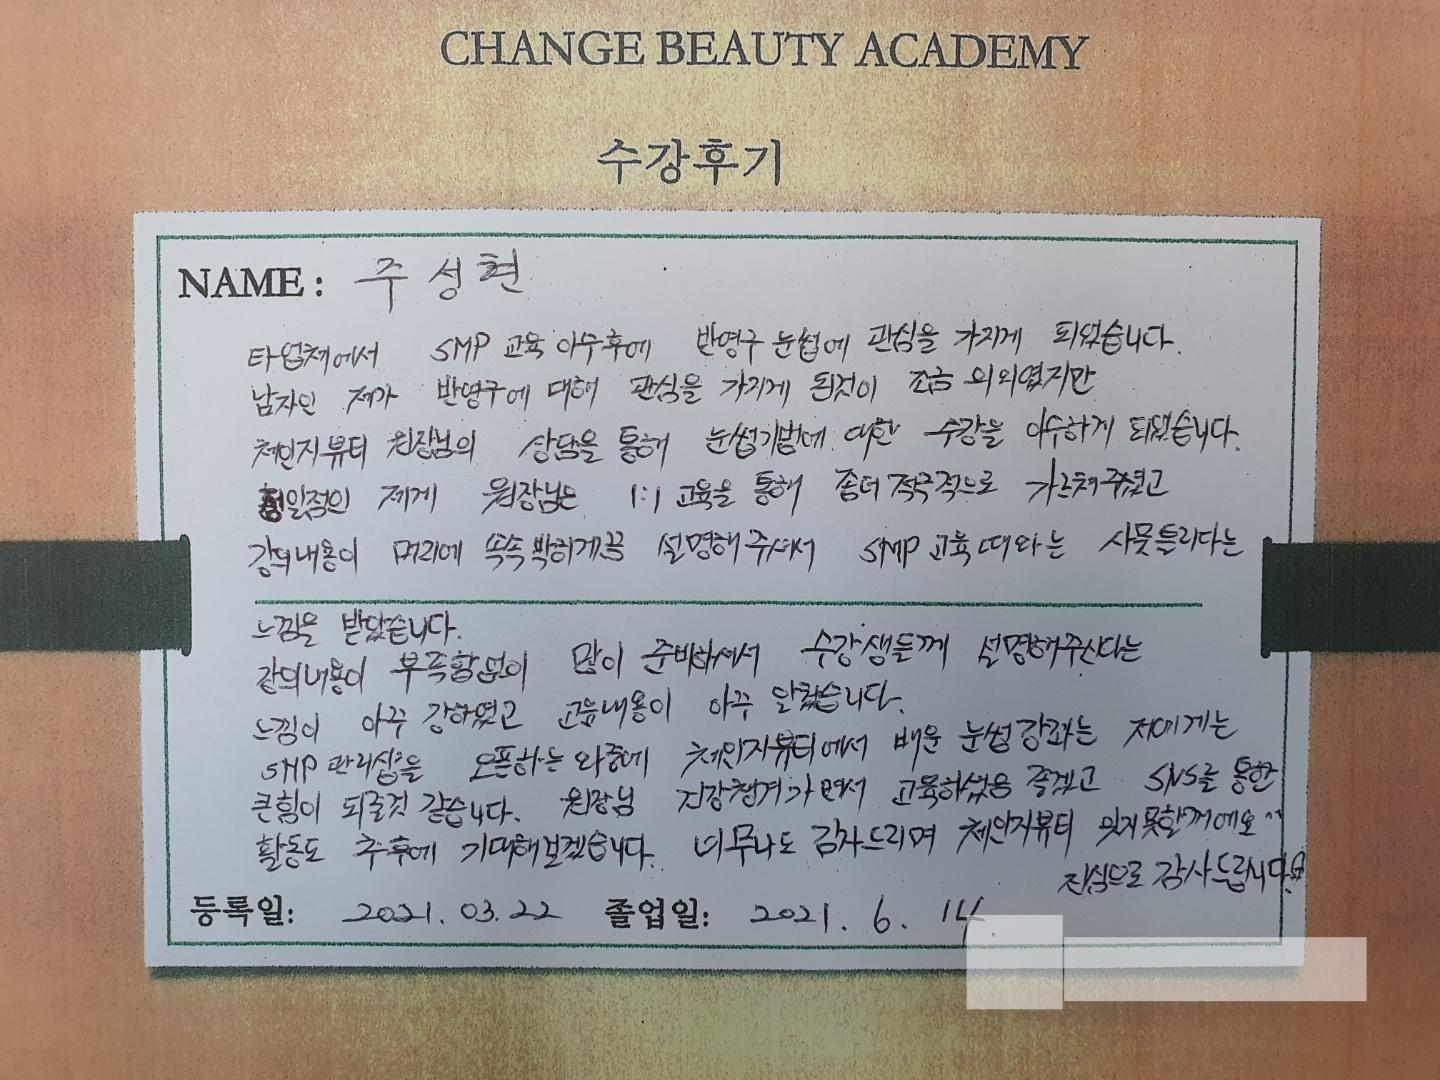 CHANGE BEAUTY ACADEMY
수강후기
NAME : 주성현
타업체에서 SMP 교육 이수후에 반영구 눈썹에 관심을 가지게 되었습니다.
남자인 제가 반영구에 대해 관심을 가지게 된것이 조금 의외였지만
체인지뷰티 원장님의 상담을 통해 눈썹기법에 대한 수강을 이수하게 되었습니다.
제게 원장님은 1:1 교육을 통해 좀더 적극적으로 가르쳐주셨고
강의내용이 머리에 쏙쏙 박히게끔 설명해주셔서 SMP 교육때와는 사뭇틀리다는
느낌을 받았습니다.
강의내용이 부족함없이 많이 준비하셔서 수강생들께 설명해주신다는
느낌이 아주 강하였고 교육내용이 아주 알찼습니다.
SMP 관리샵을 오픈하는 와중에 체인지뷰티에서 배운 눈썹강좌는 저에게는
큰힘이 되줄것 같습니다. 원장님 건강챙겨가면서 교육하셨음 좋겠고 SNS를 통한
활동도 추후에 기대해보겠습니다. 너무나도 감사드리며 체인지뷰티 잊지못할꺼에요^^
진심으로 감사드립니다.
등록일: 2021. 03. 22 졸업일: 2021. 6. 14.